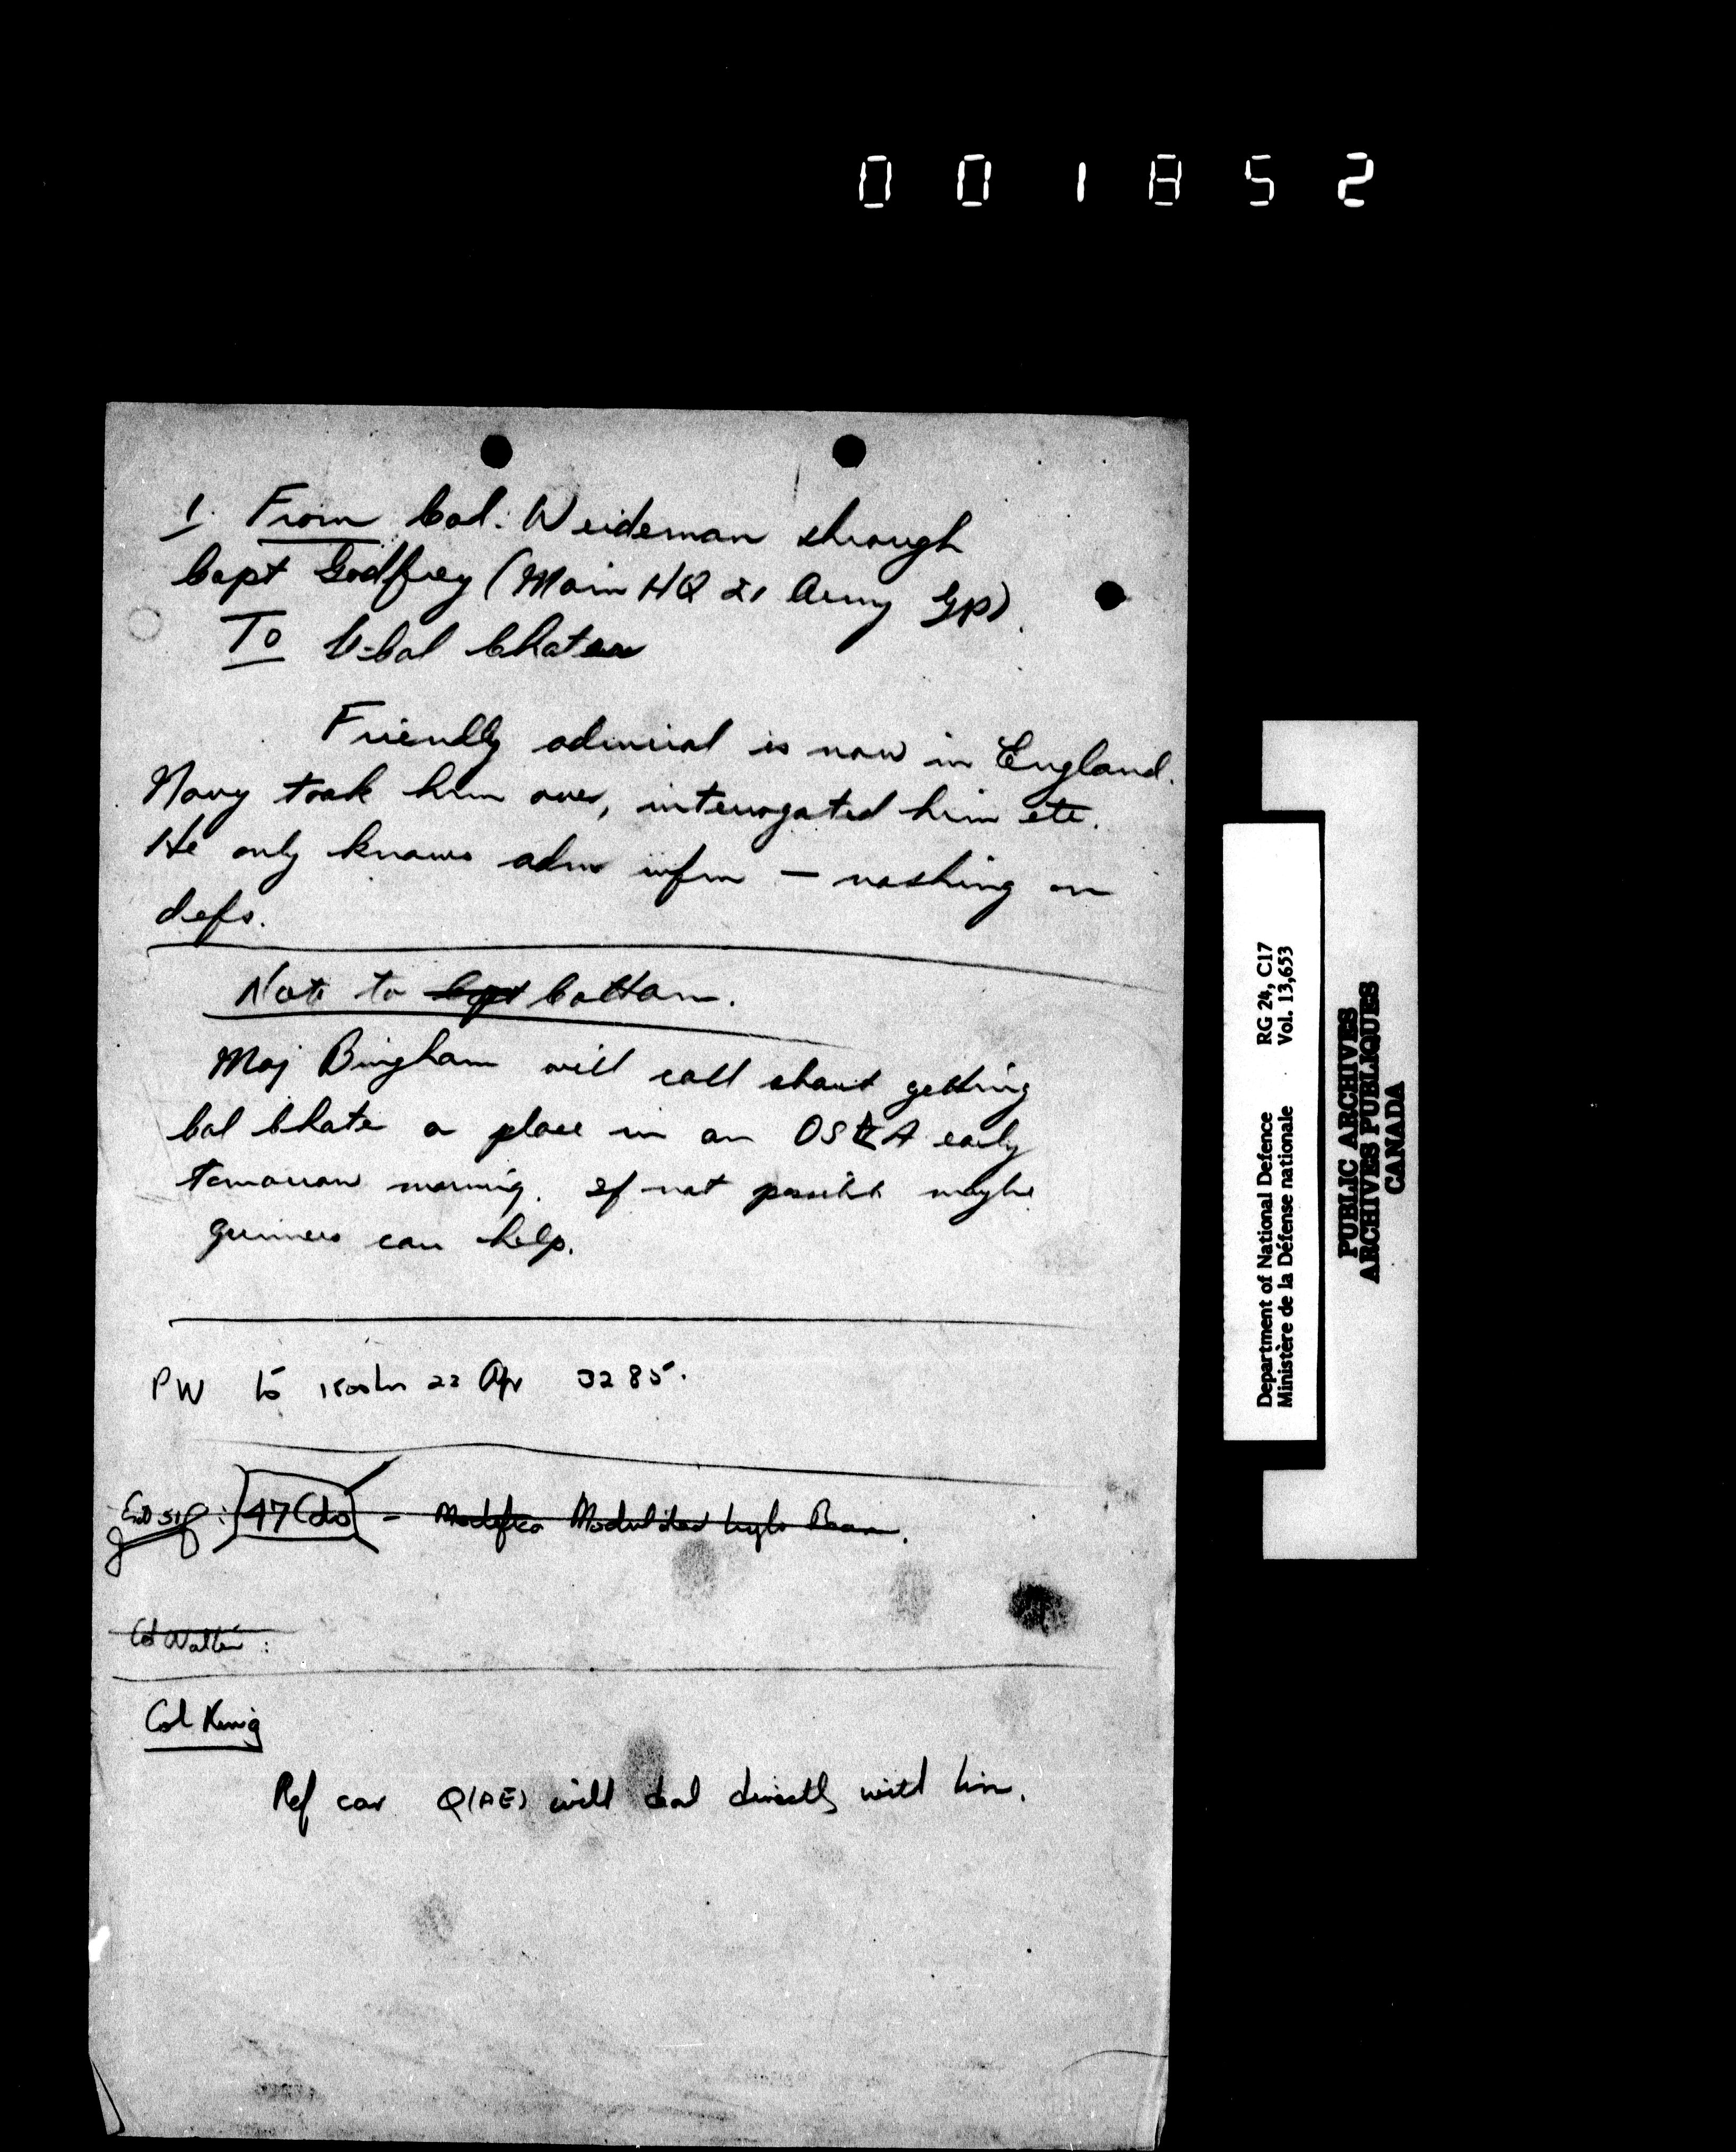 001852
1. From Col. Weideman through
Capt Godfrey (Main HQ 21 Army Gp)
To Col Chater
Friendly admiral is now in England.
Navy took him over, interrogated him etc.
He only knows adm infm — nothing on
defs.
Note to Capt Cottam.
Maj Bingham will call about getting
Col Chater a place in an early
tomorrow morning. If not possible maybe
gunners can help.
PW to 22 Apr 3285.
47 Cdo - Modulated Light Beam.
Col Walter :
Col King
Ref car Q(AE) will deal directly with him.
Department of National Defence RG 24, C17
Ministère de la Défense nationale Vol. 13,653
PUBLIC ARCHIVES
ARCHIVES PUBLIQUES
CANADA